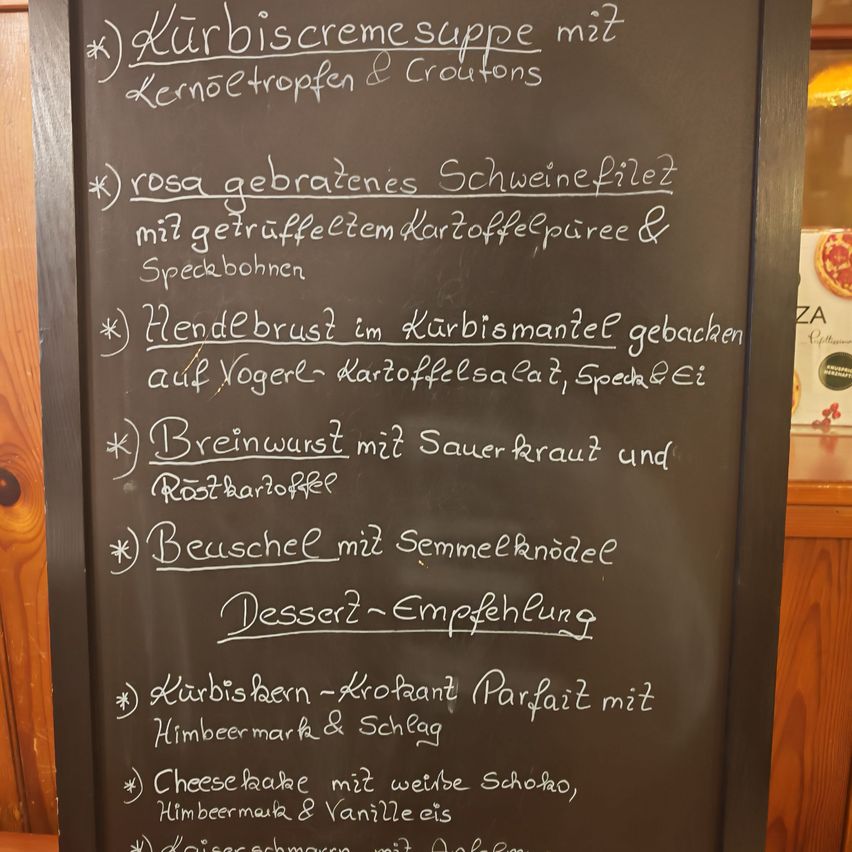 *) Kürbiscremesuppe mit
Kernöltropfen & Croutons
*) rosa gebratenes Schweinefilet
mit getrüffeltem Kartoffelpüree &
Speckbohnen
*) Hendlbrust im Kürbismantel gebacken
auf Vogerl- Kartoffelsalat, Speck & Ei
*) Breinwurst mit Sauerkraut und
Röstkartoffel
*) Beuschel mit Semmelknödel
Dessert-Empfehlung
*) Kürbiskern-Krokant Parfait mit
Himbeermark & Schlag
*) Cheesekake mit weiße Schoko,
Himbeermark & Vanilleeis
*) Kaiserschmarrn mit
ZA